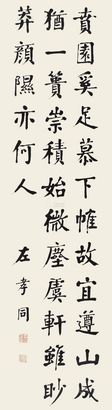 賁園奚足慕下帷故宜遵山成
猶一簣崇積始微塵虞軒雖眇
莽顏隰亦何人
左孝同